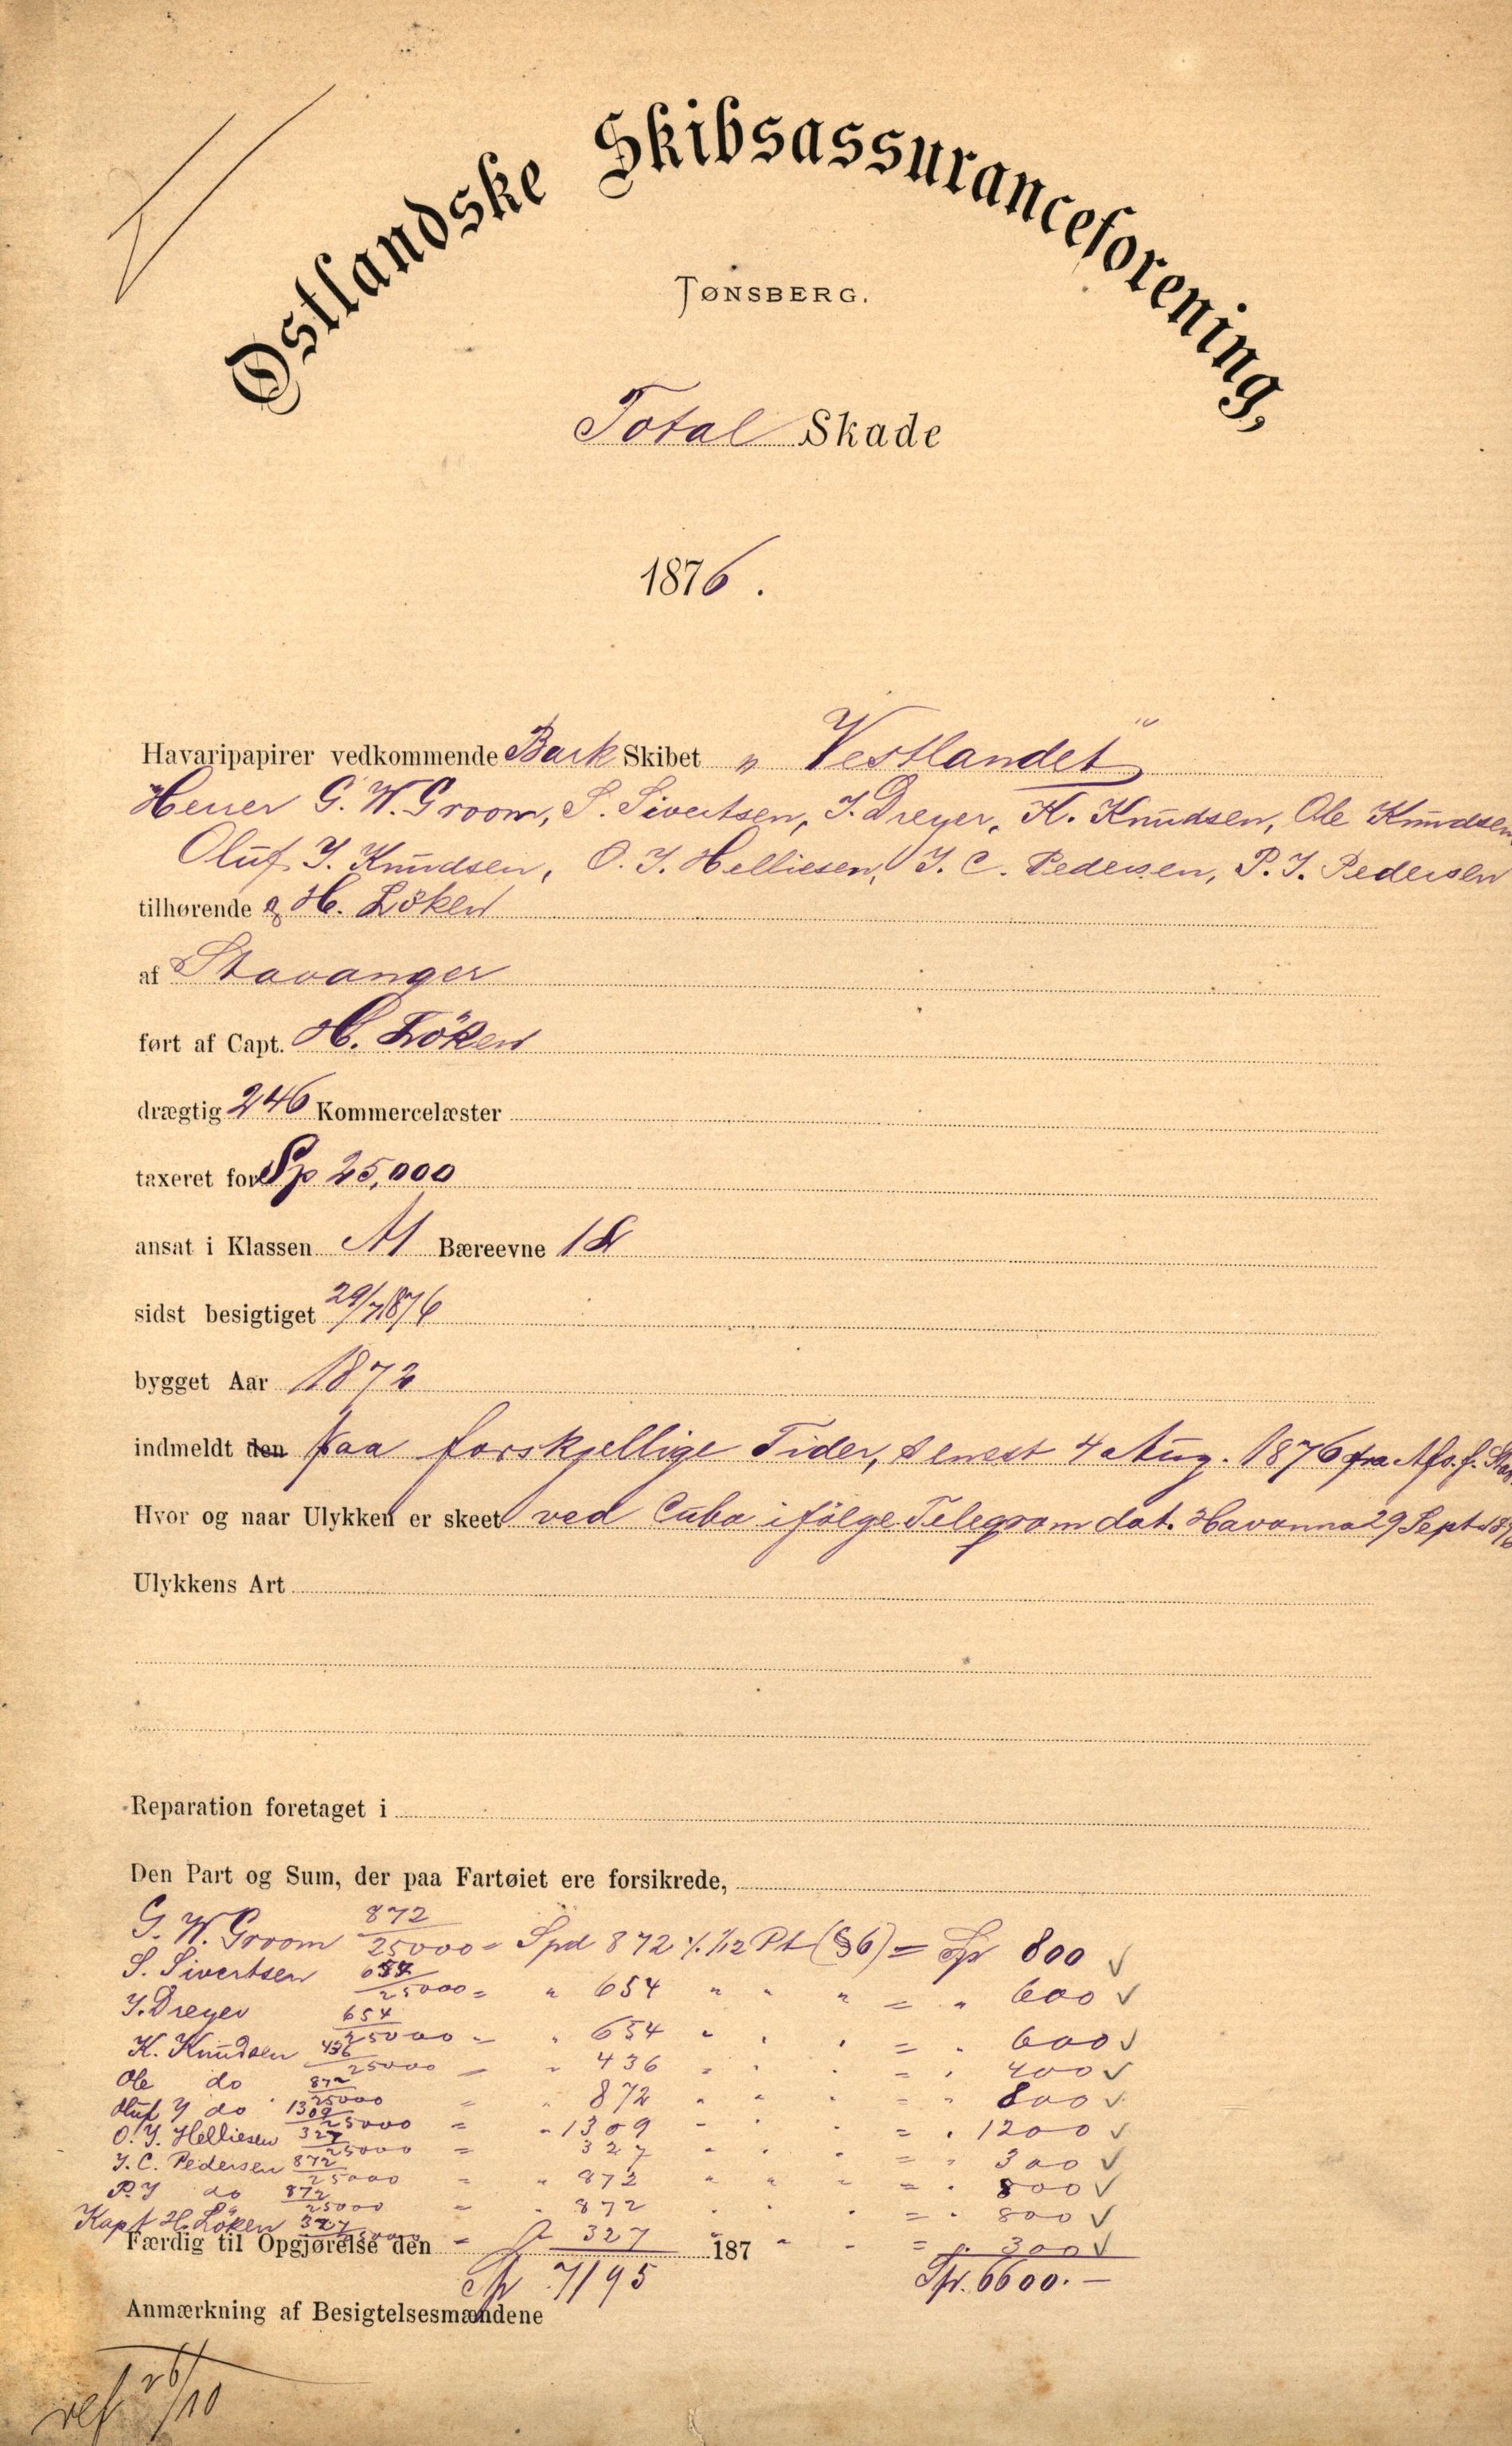 Østlandske Skibsassuranceforening,
TØNSBERG.
Total Skade
1876.
Havaripapirer vedkommende Bark Skibet „Vestlandet"
Herrer G. W. Groom, S. Sivertsen, J. Dreyer, K. Knudsen, Ole Knudsen,
Oluf J. Knudsen, O. J. Helliesen, J. C. Pedersen, P. J. Pedersen
tilhørende & H. Löken
af Stavanger
ført af Capt. H. Löken
drægtig 246 Kommercelæster
taxeret for Sp 25,000
ansat i Klassen A1 Bæreevne
sidst besigtiget 29/7 1876
bygget Aar 1872
indmeldt den paa forskjellige Tider, senest 4 Aug. 1876 fra Afs. f. Stav.
Hvor og naar Ulykken er skeet ved Cuba ifölge Telegram dat. Havanna 29 Sept 1876
Ulykkens Art
Reparation foretaget i
Den Part og Sum, der paa Fartøiet ere forsikrede,
G. W. Groom 872/25000 = Spd 872 ÷ 1/12 Pt (§6) = Sp 800 ✓
S. Sivertsen 654/25000 = " 654 " " " = " 600 ✓
J. Dreyer 654/25000 = " 654 " " " = " 600 ✓
K. Knudsen 436/25000 = " 436 " " " = " 400 ✓
Ole do 872/25000 = " 872 " " " = " 800 ✓
Oluf J do 1309/25000 = " 1309 " " " = " 1200 ✓
O. J. Helliesen 327/25000 = " 327 " " " = " 300 ✓
J. C. Pedersen 872/25000 = " 872 " " " = " 800 ✓
P. J do 872/25000 = " 872 " " " = " 800 ✓
Kapt H. Löken 327/25000 = " 327 " " " = " 300 ✓
Færdig til Opgjørelse den 187
Sp 7195 Sp. 6600.—
Anmærkning af Besigtelsesmændene
ref 26/10